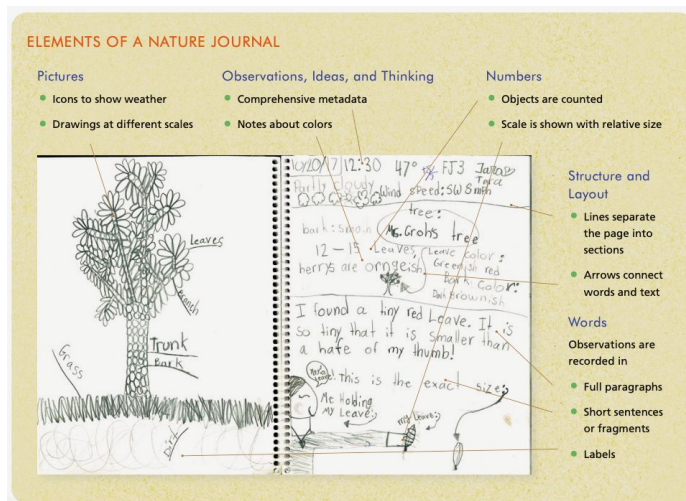 ELEMENTS OF A NATURE JOURNAL
Pictures
Icons to show weather
Drawings at different scales
Observations, Ideas, and Thinking
Comprehensive metadata
Notes about colors
Numbers
Objects are counted
Scale is shown with relative size
Structure and
Layout
Lines separate
the page into
sections
Arrows connect
words and text
Words
Observations are
recorded in
Full paragraphs
Short sentences
or fragments
Labels
leaves
branch
Trunk
Bark
Grass
Dirt
10/20/17 12:30 47° FJ3
Partly Cloudy
Wind speed: SW 8mph
tree:
Ms. Grohs tree
bark: smoth
12 — 15 Leaves
herrys are orngeish
Leave color:
Greenish red
Bark Color:
Dark Brownish
I found a tiny red Leave. It is
so tiny that it is smaller than
a hafe of my thumb!
This is the exact size:
Me Holding
My Leave:
my Leave: